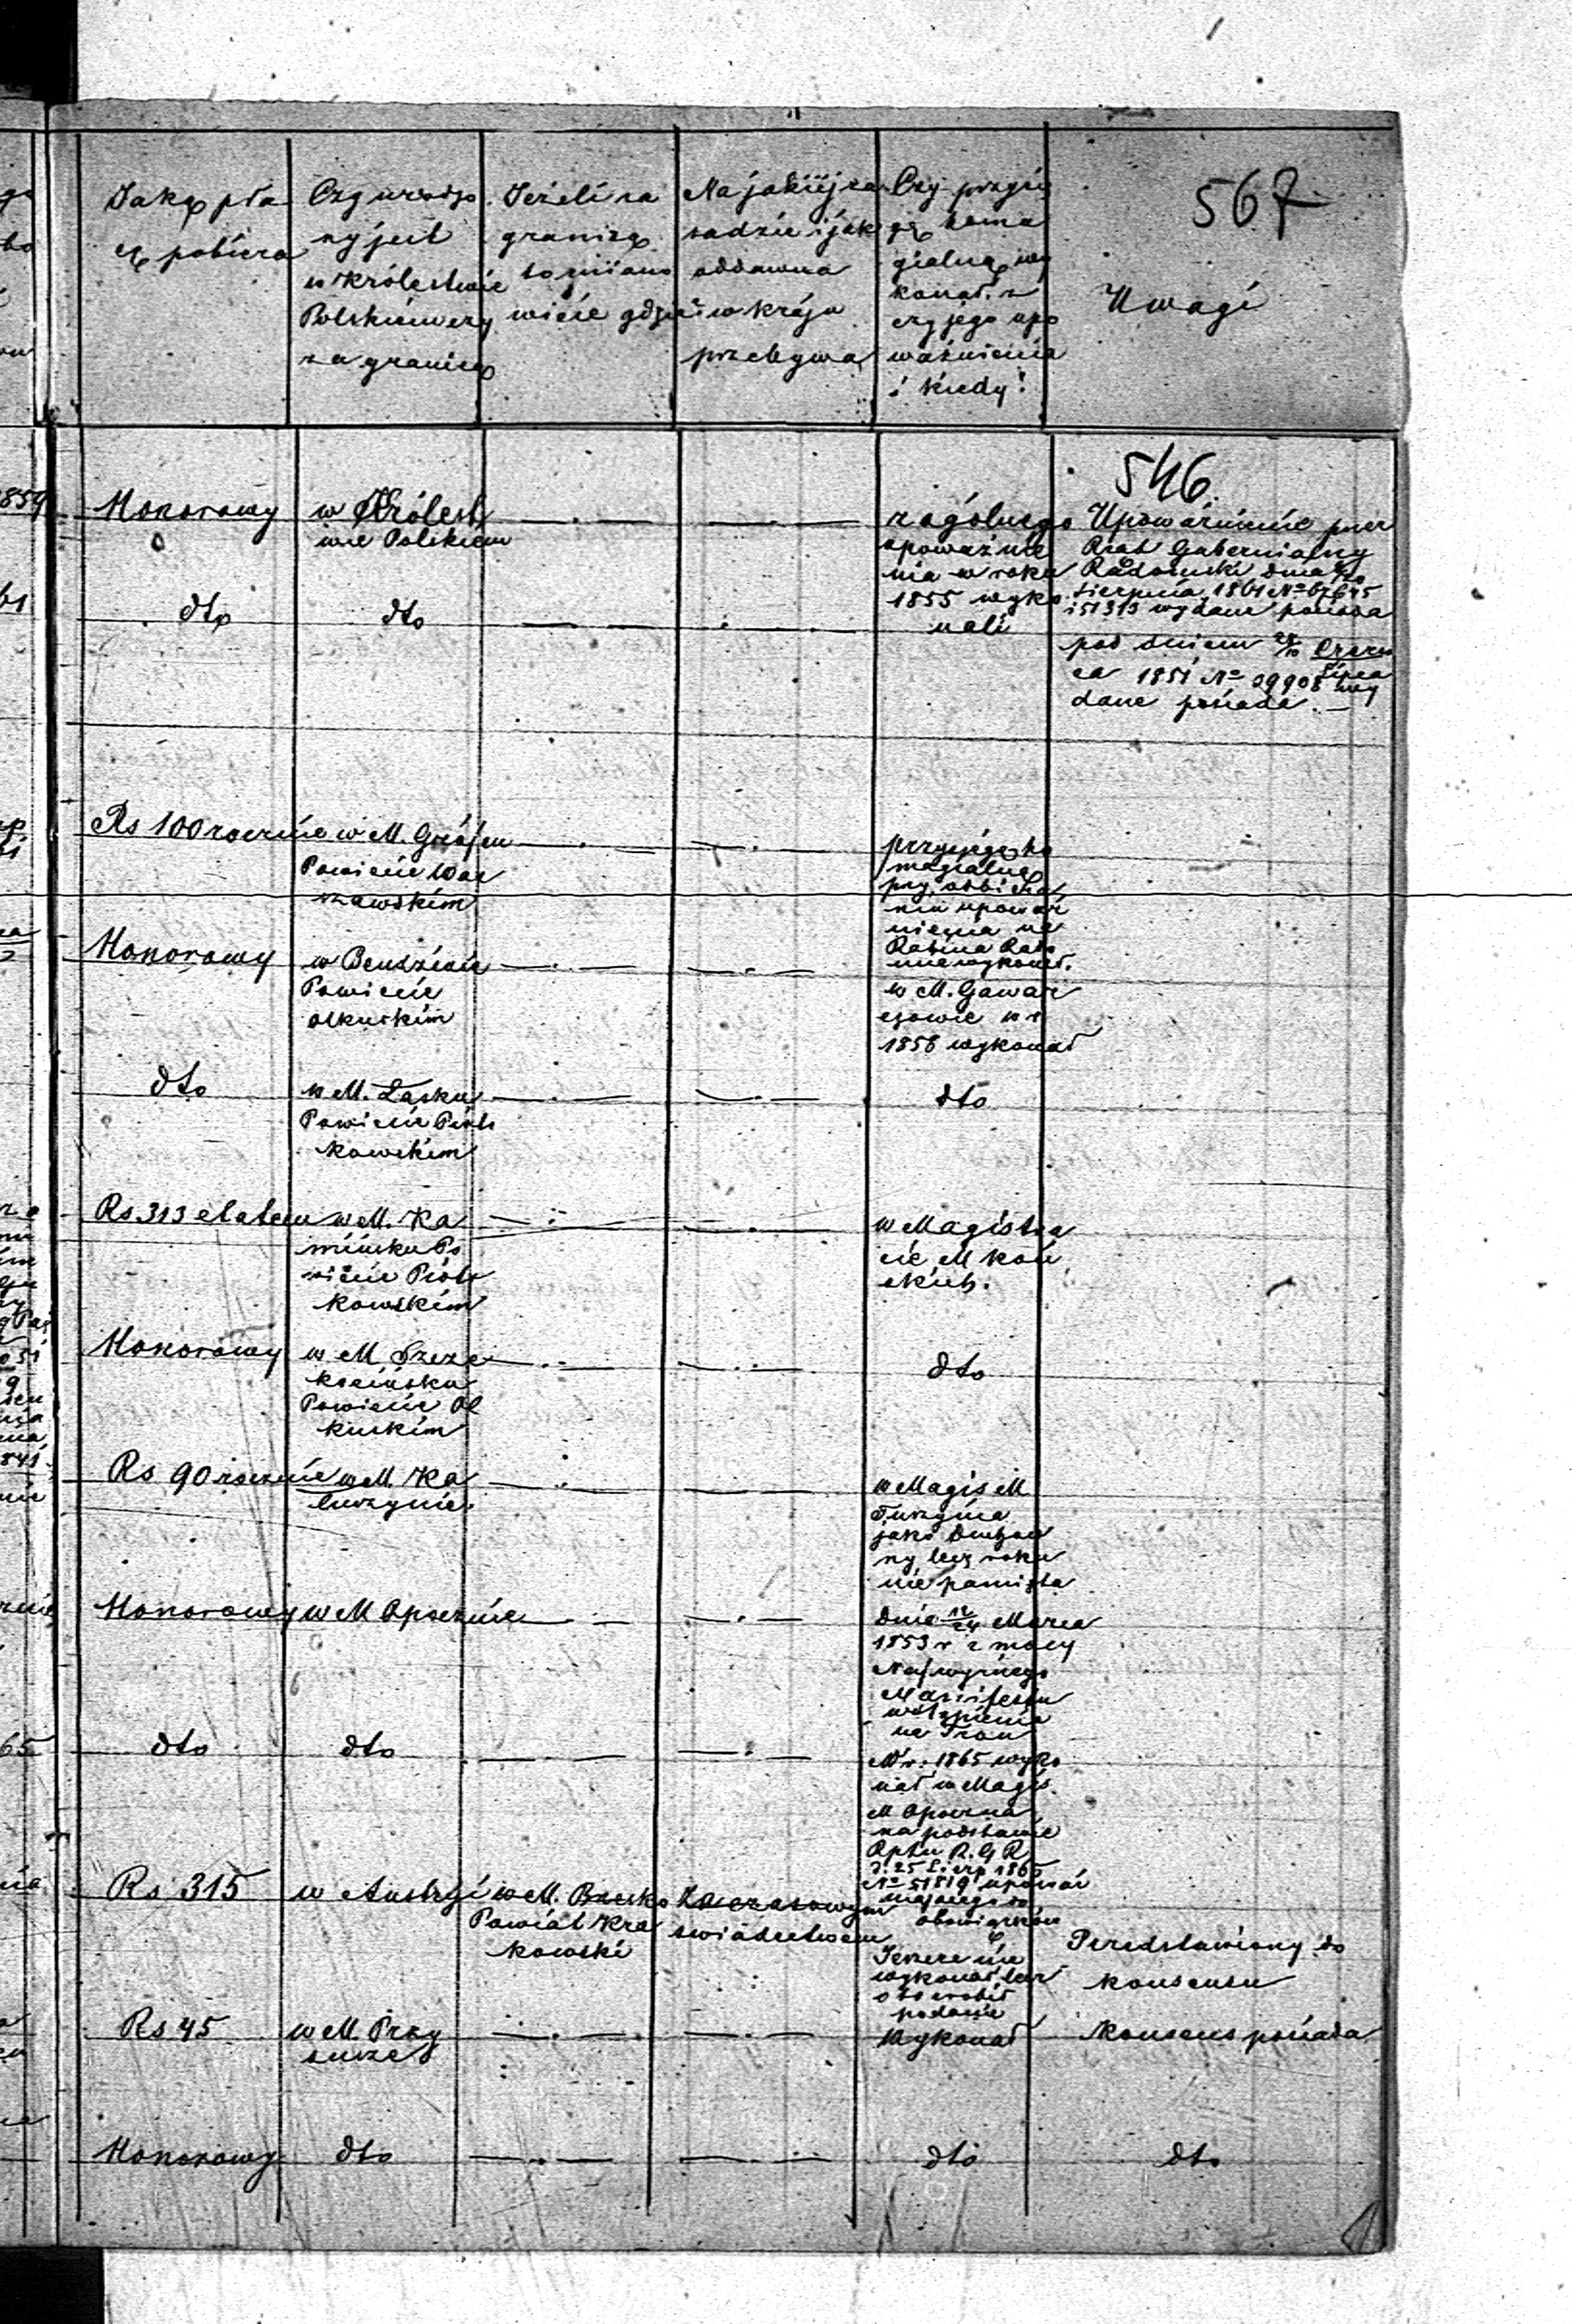 567
Jaką pła
cę pobiera
Czy urodzo
ny jest
w Królestwie
Polskiem czy
za granicą
Jeżeli za
granicą
to miano
wicie gdzie
Na jakiej za
sadzie i jak
oddawna
w kraju
przebywa
Czy przysię
gę homa
gialną wy
konał. z
czyjego upo
ważnienia
i kiedy?
Uwagi
546
Honorowy
w Królest
wie Polskiem
z ogólnego
upoważnie
nia w roku
1855 wyko
nali
Upoważnienie przez
Rząd Gubernialny
Radomski dnia
Sierpnia 1861 No
i 51313 wydane posiada
dto
dto
pod dniem Czerw
Lipca
ca 1851 No 09908 wy
dane posiada. —
Rs 100 rocznie
w M. Grójcu
Powiecie War
szawskim
przysięgę ho
magialną
przy odbiera
niu upoważ
nienia na
Rabina Rado
mia wykonał.
Honorowy
w Bendzinie
Powiecie
Olkuskim
w M. Gowar
czowie w r
1856 wykonał
dto
w M. Łasku
Powiecie Piotr
kowskim
dto
Rs. 313 etatem
w M. Ka
mińsku Po
wiecie Piotr
kowskim
w Magistra
cie M Koń
skich.
Honorowy
w M Szcze
kocinsku
Powiecie Ol
kuskim
dto
Rs 90 rocznie
w M. Ka
łuszynie.
w Magis M
Tuszyna
jako Duchow
ny lecz roku
nie pamięta
Honorowy
w M Opocznie
dnia 12/24 Marca
1853 r z mocy
Najwyższego
Manifestu
wstąpienia
na Tron
dto
dto
W r. 1865 wyko
nał w Magis.
M Opoczna
na podstawie
Rptu R. G R
d. 25 Sierp 1865
No 51819 upoważ
niającego do
obowiązków
Rs 315
w Austryi
w M. Brzesko
Powiat Kra
kowski
Za czasowym
swiadectwem
Jeszcze nie
wykonał lecz
o to zrobił
podanie
Przedstawiony do
konsensu
Rs 45
w M. Przy
susze
Wykonał
Konsens posiada
Honorowy
dto
dto
dto